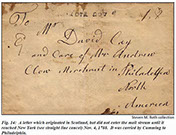 To
Mr David Cay
and Care of Mr Andrew
Clow Merchant in Philadelfia
North
America
Steven M. Roth collection
Fig. 14: A letter which originated in Scotland, but did not enter the mail stream until it
reached New York (see straight line cancel) Nov. 4, 1788. It was carried by Cumming to
Philadelphia.